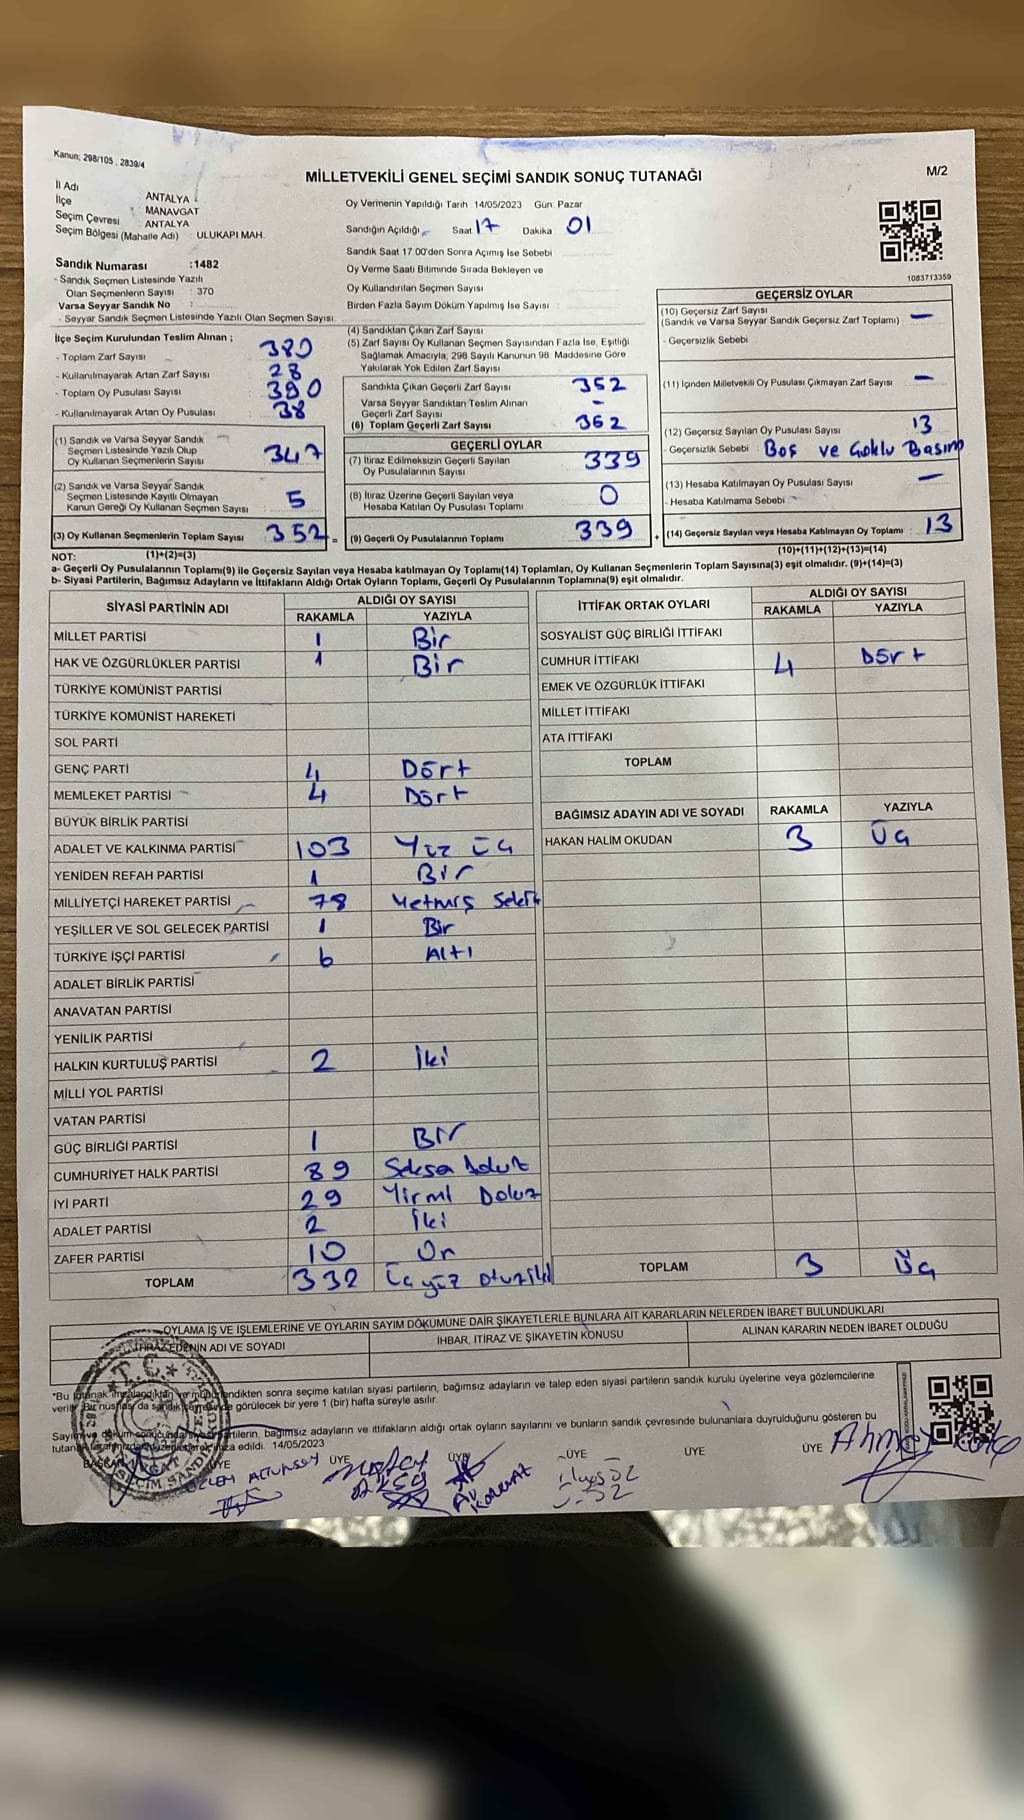 Kanun; 298/105 , 2839/4
MİLLETVEKİLİ GENEL SEÇİMİ SANDIK SONUÇ TUTANAĞI
M/2
İl Adı ANTALYA
İlçe MANAVGAT
Seçim Çevresi ANTALYA
Seçim Bölgesi (Mahalle Adı) : ULUKAPI MAH.
Sandık Numarası :1482
- Sandık Seçmen Listesinde Yazılı
Olan Seçmenlerin Sayısı : 370
Varsa Seyyar Sandık No :
- Seyyar Sandık Seçmen Listesinde Yazılı Olan Seçmen Sayısı
Oy Vermenin Yapıldığı Tarih :14/05/2023 Gün: Pazar
Sandığın Açıldığı Saat 17 Dakika 01
Sandık Saat 17:00'den Sonra Açılmış İse Sebebi
Oy Verme Saati Bitiminde Sırada Bekleyen ve
Oy Kullandırılan Seçmen Sayısı
Birden Fazla Sayım Döküm Yapılmış İse Sayısı
1083713359
İlçe Seçim Kurulundan Teslim Alınan ;
- Toplam Zarf Sayısı : 380
- Kullanılmayarak Artan Zarf Sayısı : 28
- Toplam Oy Pusulası Sayısı : 390
- Kullanılmayarak Artan Oy Pusulası : 38
(1) Sandık ve Varsa Seyyar Sandık
Seçmen Listesinde Yazılı Olup
Oy Kullanan Seçmenlerin Sayısı 347
(2) Sandık ve Varsa Seyyar Sandık
Seçmen Listesinde Kayıtlı Olmayan
Kanun Gereği Oy Kullanan Seçmen Sayısı 5
(3) Oy Kullanan Seçmenlerin Toplam Sayısı 352 =
(4) Sandıktan Çıkan Zarf Sayısı
(5) Zarf Sayısı Oy Kullanan Seçmen Sayısından Fazla İse, Eşitliği
Sağlamak Amacıyla, 298 Sayılı Kanunun 98. Maddesine Göre
Yakılarak Yok Edilen Zarf Sayısı
Sandıkta Çıkan Geçerli Zarf Sayısı 352
Varsa Seyyar Sandıktan Teslim Alınan
Geçerli Zarf Sayısı -
(6) Toplam Geçerli Zarf Sayısı 352
GEÇERLİ OYLAR
(7) İtiraz Edilmeksizin Geçerli Sayılan
Oy Pusulalarının Sayısı 339
(8) İtiraz Üzerine Geçerli Sayılan veya
Hesaba Katılan Oy Pusulası Toplamı 0
(9) Geçerli Oy Pusulalarının Toplamı 339 +
GEÇERSİZ OYLAR
(10) Geçersiz Zarf Sayısı
(Sandık ve Varsa Seyyar Sandık Geçersiz Zarf Toplamı) -
- Geçersizlik Sebebi
(11) İçinden Milletvekili Oy Pusulası Çıkmayan Zarf Sayısı -
(12) Geçersiz Sayılan Oy Pusulası Sayısı 13
- Geçersizlik Sebebi Boş ve Çoklu Basım
(13) Hesaba Katılmayan Oy Pusulası Sayısı -
- Hesaba Katılmama Sebebi
(14) Geçersiz Sayılan veya Hesaba Katılmayan Oy Toplamı : 13
NOT: (1)+(2)=(3) (10)+(11)+(12)+(13)=(14)
a- Geçerli Oy Pusulalarının Toplamı(9) ile Geçersiz Sayılan veya Hesaba katılmayan Oy Toplamı(14) Toplamları, Oy Kullanan Seçmenlerin Toplam Sayısına(3) eşit olmalıdır. (9)+(14)=(3)
b- Siyasi Partilerin, Bağımsız Adayların ve İttifakların Aldığı Ortak Oyların Toplamı, Geçerli Oy Pusulalarının Toplamına(9) eşit olmalıdır.
SİYASİ PARTİNİN ADI ALDIĞI OY SAYISI
RAKAMLA YAZIYLA
MİLLET PARTİSİ 1 Bir
HAK VE ÖZGÜRLÜKLER PARTİSİ 1 Bir
TÜRKİYE KOMÜNİST PARTİSİ
TÜRKİYE KOMÜNİST HAREKETİ
SOL PARTİ
GENÇ PARTİ 4 Dört
MEMLEKET PARTİSİ 4 Dört
BÜYÜK BİRLİK PARTİSİ
ADALET VE KALKINMA PARTİSİ 103 Yüz Üç
YENİDEN REFAH PARTİSİ 1 Bir
MİLLİYETÇİ HAREKET PARTİSİ 78 Yetmiş Sekiz
YEŞİLLER VE SOL GELECEK PARTİSİ 1 Bir
TÜRKİYE İŞÇİ PARTİSİ 6 Altı
ADALET BİRLİK PARTİSİ
ANAVATAN PARTİSİ
YENİLİK PARTİSİ
HALKIN KURTULUŞ PARTİSİ 2 İki
MİLLİ YOL PARTİSİ
VATAN PARTİSİ
GÜÇ BİRLİĞİ PARTİSİ 1 Bir
CUMHURİYET HALK PARTİSİ 89 Seksen Dokuz
İYİ PARTİ 29 Yirmi Dokuz
ADALET PARTİSİ 2 İki
ZAFER PARTİSİ 10 On
TOPLAM 332 Üç yüz otuz iki
İTTİFAK ORTAK OYLARI ALDIĞI OY SAYISI
RAKAMLA YAZIYLA
SOSYALİST GÜÇ BİRLİĞİ İTTİFAKI
CUMHUR İTTİFAKI 4 Dört
EMEK VE ÖZGÜRLÜK İTTİFAKI
MİLLET İTTİFAKI
ATA İTTİFAKI
TOPLAM
BAĞIMSIZ ADAYIN ADI VE SOYADI RAKAMLA YAZIYLA
HAKAN HALİM OKUDAN 3 Üç
TOPLAM 3 Üç
OYLAMA İŞ VE İŞLEMLERİNE VE OYLARIN SAYIM DÖKÜMÜNE DAİR ŞİKAYETLERLE BUNLARA AİT KARARLARIN NELERDEN İBARET BULUNDUKLARI
İTİRAZ EDENİN ADI VE SOYADI İHBAR, İTİRAZ VE ŞİKAYETİN KONUSU ALINAN KARARIN NEDEN İBARET OLDUĞU
*Bu tutanak imzalandıktan ve mühürlendikten sonra seçime katılan siyasi partilerin, bağımsız adayların ve talep eden siyasi partilerin sandık kurulu üyelerine veya gözlemcilerine
verilir. Bir nüshası da sandık çevresinde görülecek bir yere 1 (bir) hafta süreyle asılır.
Sayım ve döküm sonucunda siyasi partilerin, bağımsız adayların ve ittifakların aldığı ortak oyların sayılarını ve bunların sandık çevresinde bulunanlara duyrulduğunu gösteren bu
tutanak tarafımızdan düzenlenerek imza edildi. 14/05/2023
BAŞKAN ÜYE ÜYE ÜYE ÜYE ÜYE ÜYE
T.C.